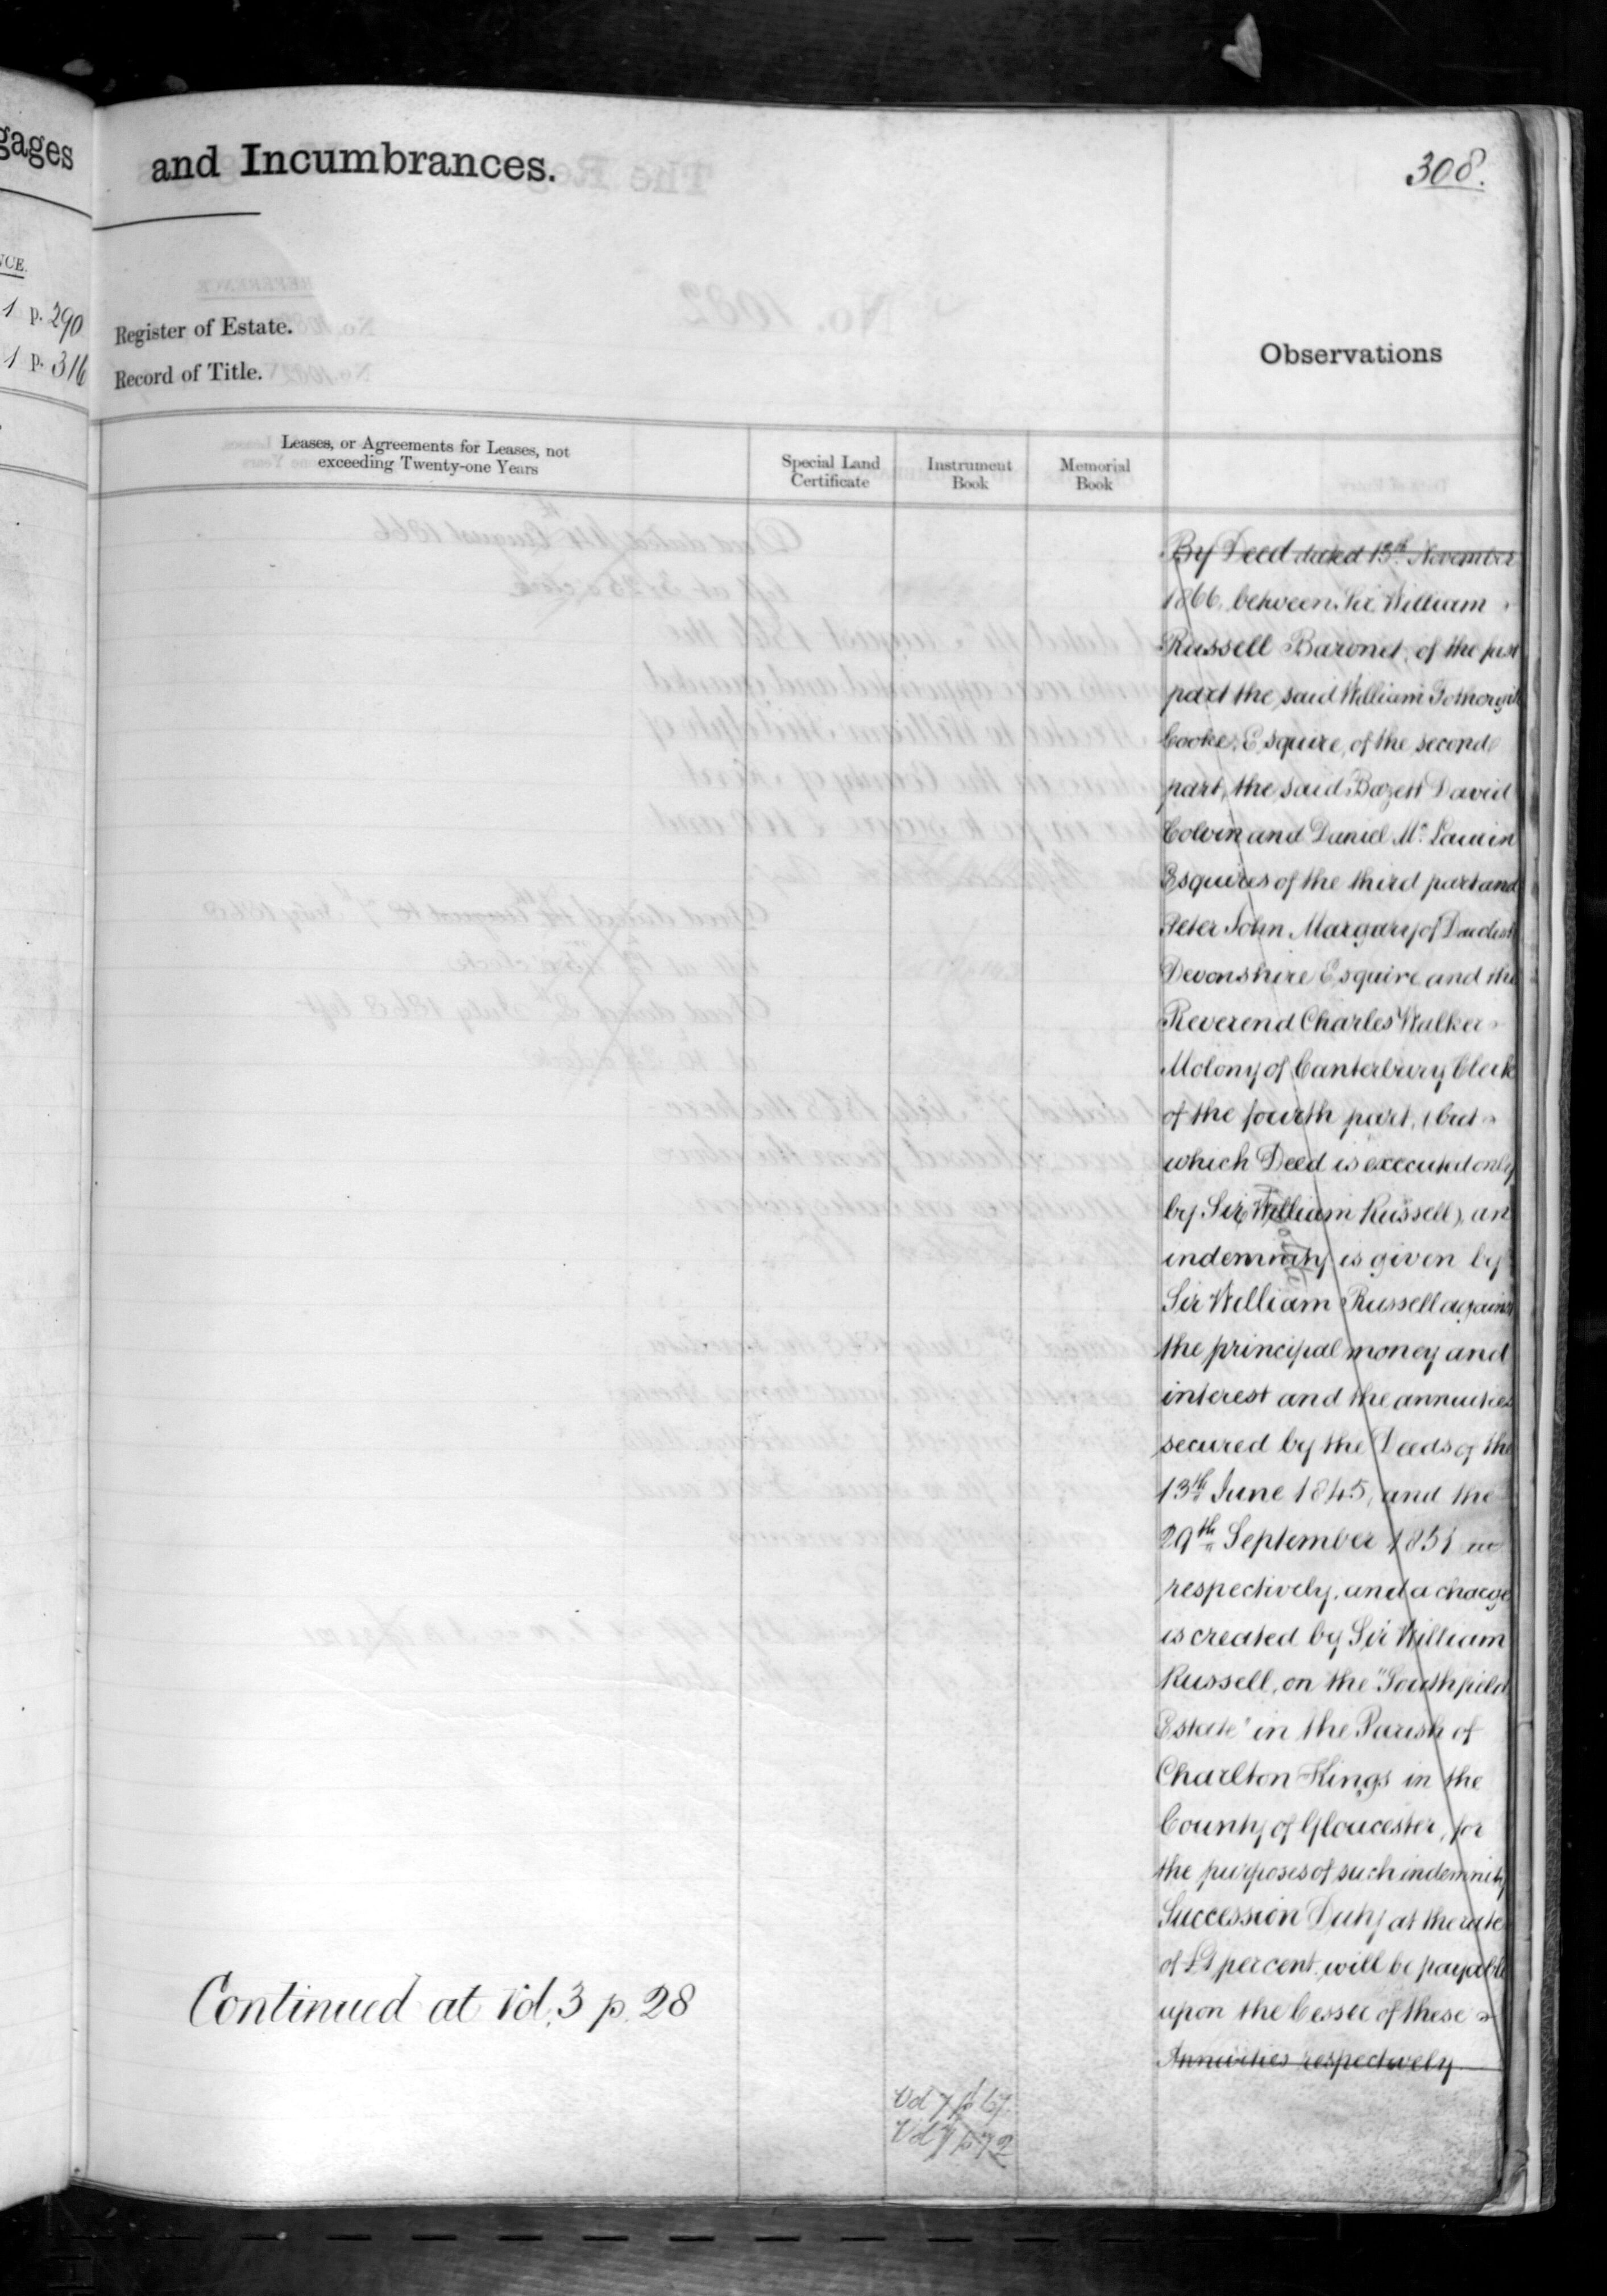 gages
and Incumbrances.
308.
NCE.
1 p. 290
Register of Estate.
1 p. 316
Record of Title.
Observations
Leases, or Agreements for Leases, not
exceeding Twenty-one Years
Special Land
Certificate
Instrument
Book
Memorial
Book
By Deed dated 13th November
1866, between Sir William
Russell Baronet, of the first
part the said William Fothergill
Cooke, Esquire, of the second
part, the said Bazett David
Colvin and Daniel
Esquires of the third part and
Peter John Margary of
Devonshire Esquire and the
Reverend Charles Walker
Molony of Canterbury Clerk
of the fourth part, (but
which Deed is executed only
by Sir William Russell), an
indemnity is given by
Sir William Russell against
the principal money and
interest and the annuities
secured by the Deeds of the
13th June 1845, and the
29th September 1851
respectively, and a charge
is created by Sir William
Russell, on the "Southfield
Estate" in the Parish of
Charlton Kings in the
County of Gloucester, for
the purposes of such indemnity
Succession Duty at the rate
of £1 per cent. will be payable
upon the Cesser of these
Annuities respectively
Continued at Vol. 3 p. 28
Vol 7 p 67.
Vol 7 p 72